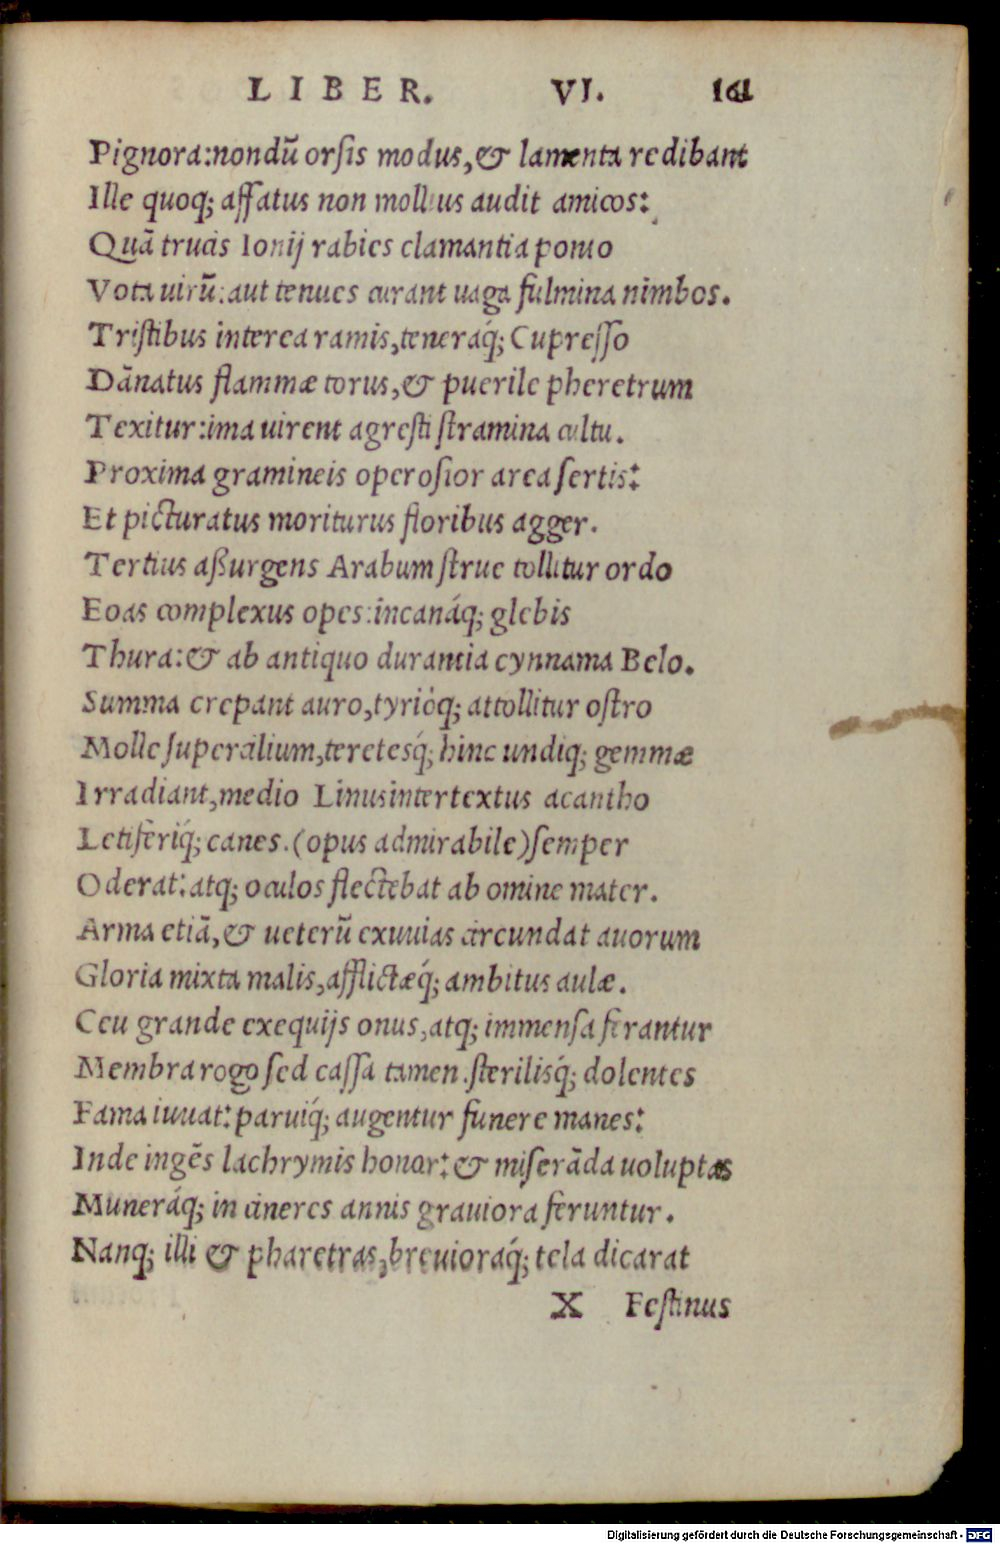 LIBER. VI. 161
Pignora:nondū orsis modus,& lamenta redibant
Ille quoq; affatus non mollius audit amicos:
Quā trucis Ionij rabies clamantia ponto
Vota uirū:aut tenues curant uaga fulmina nimbos.
Tristibus interea ramis,teneraq́; Cupresso
Dānatus flammæ torus,& puerile pheretrum
Texitur:ima uirent agresti stramina cultu.
Proxima gramineis operosior area sertis:
Et picturatus moriturus floribus agger.
Tertius aßurgens Arabum strue tollitur ordo
Eoas complexus opes:incanáq; glebis
Thura:& ab antiquo durantia cynnama Belo.
Summa crepant auro,tyrióq; attollitur ostro
Molle supercilium,teretesq́; hinc undiq; gemmæ
Irradiant,medio Linus intertextus acantho
Letiferiq́; canes.(opus admirabile)semper
Oderat:atq; oculos flectebat ab omine mater.
Arma etiā,& ueterū exuuias circundat auorum
Gloria mixta malis,afflictæq́; ambitus aulæ.
Ceu grande exequijs onus,atq; immensa ferantur
Membra rogo sed cassa tamen.sterilisq́; dolentes
Fama iuuat:paruiq́; augentur funere manes:
Inde ingēs lachrymis honor:& miserāda uoluptas
Muneráq; in cineres annis grauiora feruntur.
Nanq; illi & pharetras,breuioraq́; tela dicarat
X Festinus
Digitalisierung gefördert durch die Deutsche Forschungsgemeinschaft - DFG